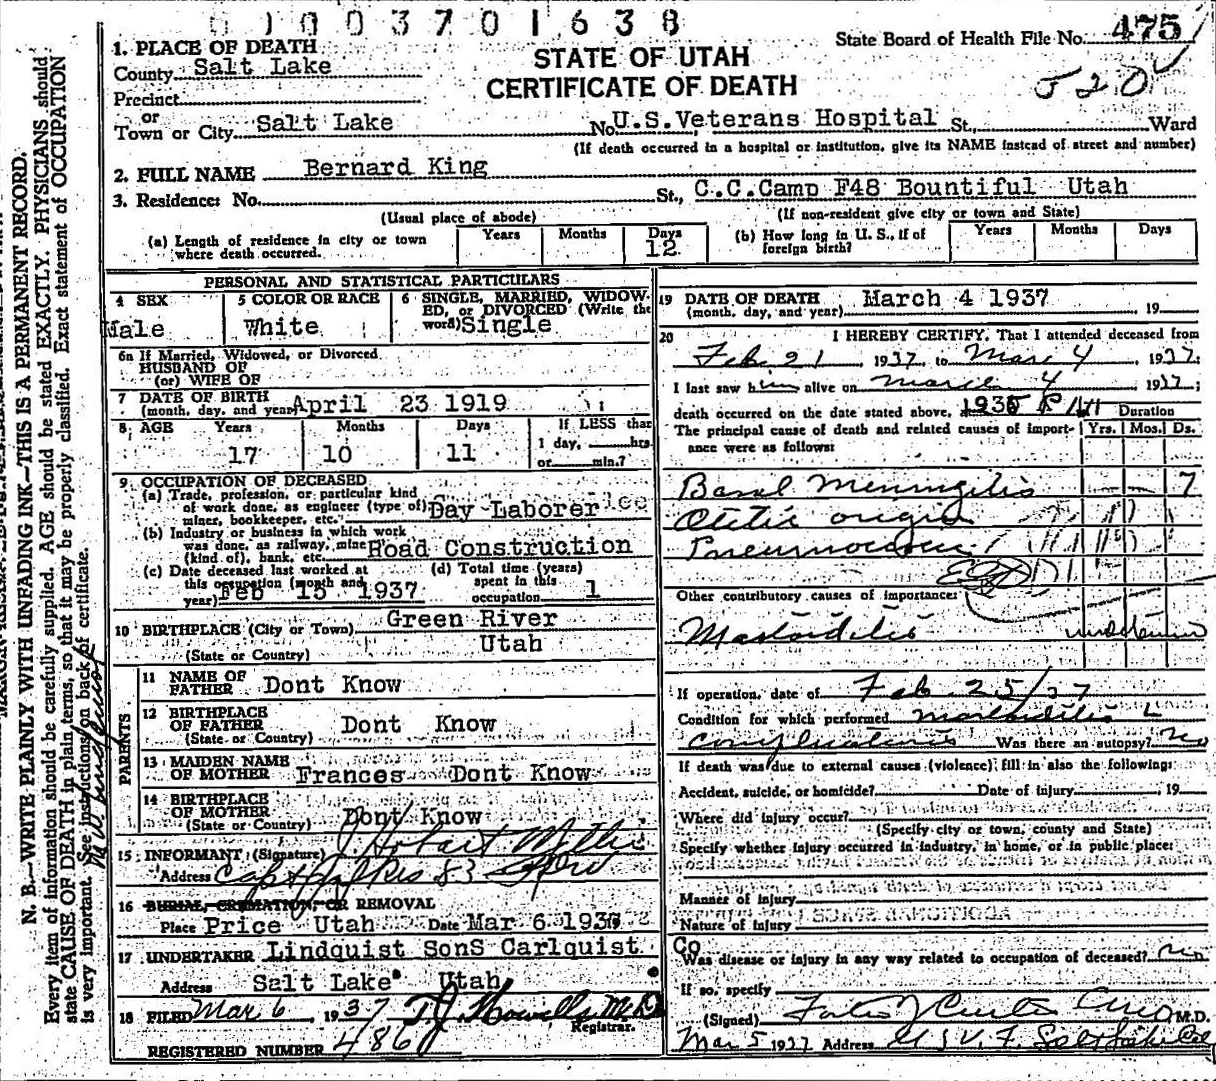 0 1 0 0 3 7 0 1 6 3 8
State Board of Health File No. 475
520
STATE OF UTAH
CERTIFICATE OF DEATH
1. PLACE OF DEATH
County Salt Lake
Precinct
or
Town or City Salt Lake No. U.S.Veterans Hospital St., Ward
(If death occurred in a hospital or institution, give its NAME instead of street and number)
2. FULL NAME Bernard King
3. Residence: No. St., C.C.Camp F48 Bountiful Utah
(Usual place of abode) (If non-resident give city or town and State)
(a) Length of residence in city or town where death occurred. Years Months Days 12
(b) How long in U. S., if of foreign birth? Years Months Days
PERSONAL AND STATISTICAL PARTICULARS
4 SEX Male
5 COLOR OR RACE White
6 SINGLE, MARRIED, WIDOWED, or DIVORCED (Write the word) Single
6a If Married, Widowed, or Divorced
HUSBAND OF
(or) WIFE OF
7 DATE OF BIRTH
(month, day, and year) April 23 1919
8. AGE Years Months Days If LESS than
17 10 11 1 day, hrs.
or min.?
9 OCCUPATION OF DECEASED
(a) Trade, profession, or particular kind
of work done, as engineer (type of)
miner, bookkeeper, etc. Day Laborer
(b) Industry or business in which work
was done, as railway, mine
(kind of), bank, etc. Road Construction
(c) Date deceased last worked at
this occupation (month and
year) Feb 15 1937
(d) Total time (years)
spent in this
occupation 1
10 BIRTHPLACE (City or Town) Green River
(State or Country) Utah
PARENTS
11 NAME OF
FATHER Dont Know
12 BIRTHPLACE
OF FATHER
(State or Country) Dont Know
13 MAIDEN NAME
OF MOTHER Frances Dont Know
14 BIRTHPLACE
OF MOTHER
(State or Country) Dont Know
15 INFORMANT (Signature) J. Hobart
Address Capt
16 BURIAL, CREMATION, OR REMOVAL
Place Price Utah Date Mar 6 1937
17 UNDERTAKER Lindquist SonS Carlquist Co
Address Salt Lake Utah
18 FILED Mar 6, 1937 T. J. Howells M.D.
Registrar.
REGISTERED NUMBER 486
19 DATE OF DEATH
(month, day, and year) March 4 1937 19
20 I HEREBY CERTIFY, That I attended deceased from
Feb 21, 1937, to Marc 4, 1937;
I last saw him alive on March 4, 1937;
death occurred on the date stated above, Duration
The principal cause of death and related causes of importance were as follows: Yrs. Mos. Ds.
Basal Meningitis 7
Otitic origin
Pneumococcic
Other contributory causes of importance:
Mastoiditis
If operation, date of Feb 25/37
Condition for which performed Mastoiditis L
complications Was there an autopsy? No
If death was due to external causes (violence), fill in also the following:
Accident, suicide, or homicide? Date of injury 19
Where did injury occur?
(Specify city or town, county and State)
Specify whether injury occurred in industry, in home, or in public place:
Manner of injury
Nature of injury
Was disease or injury in any way related to occupation of deceased? no
If so, specify
(Signed) M.D.
Mar 5 1937 Address U S V. F. Salt Lake
N. B.—WRITE PLAINLY WITH UNFADING INK—THIS IS A PERMANENT RECORD.
Every item of information should be carefully supplied. AGE should be stated EXACTLY. PHYSICIANS should
state CAUSE OF DEATH in plain terms, so that it may be properly classified. Exact statement of OCCUPATION
is very important. See instructions on back of certificate.